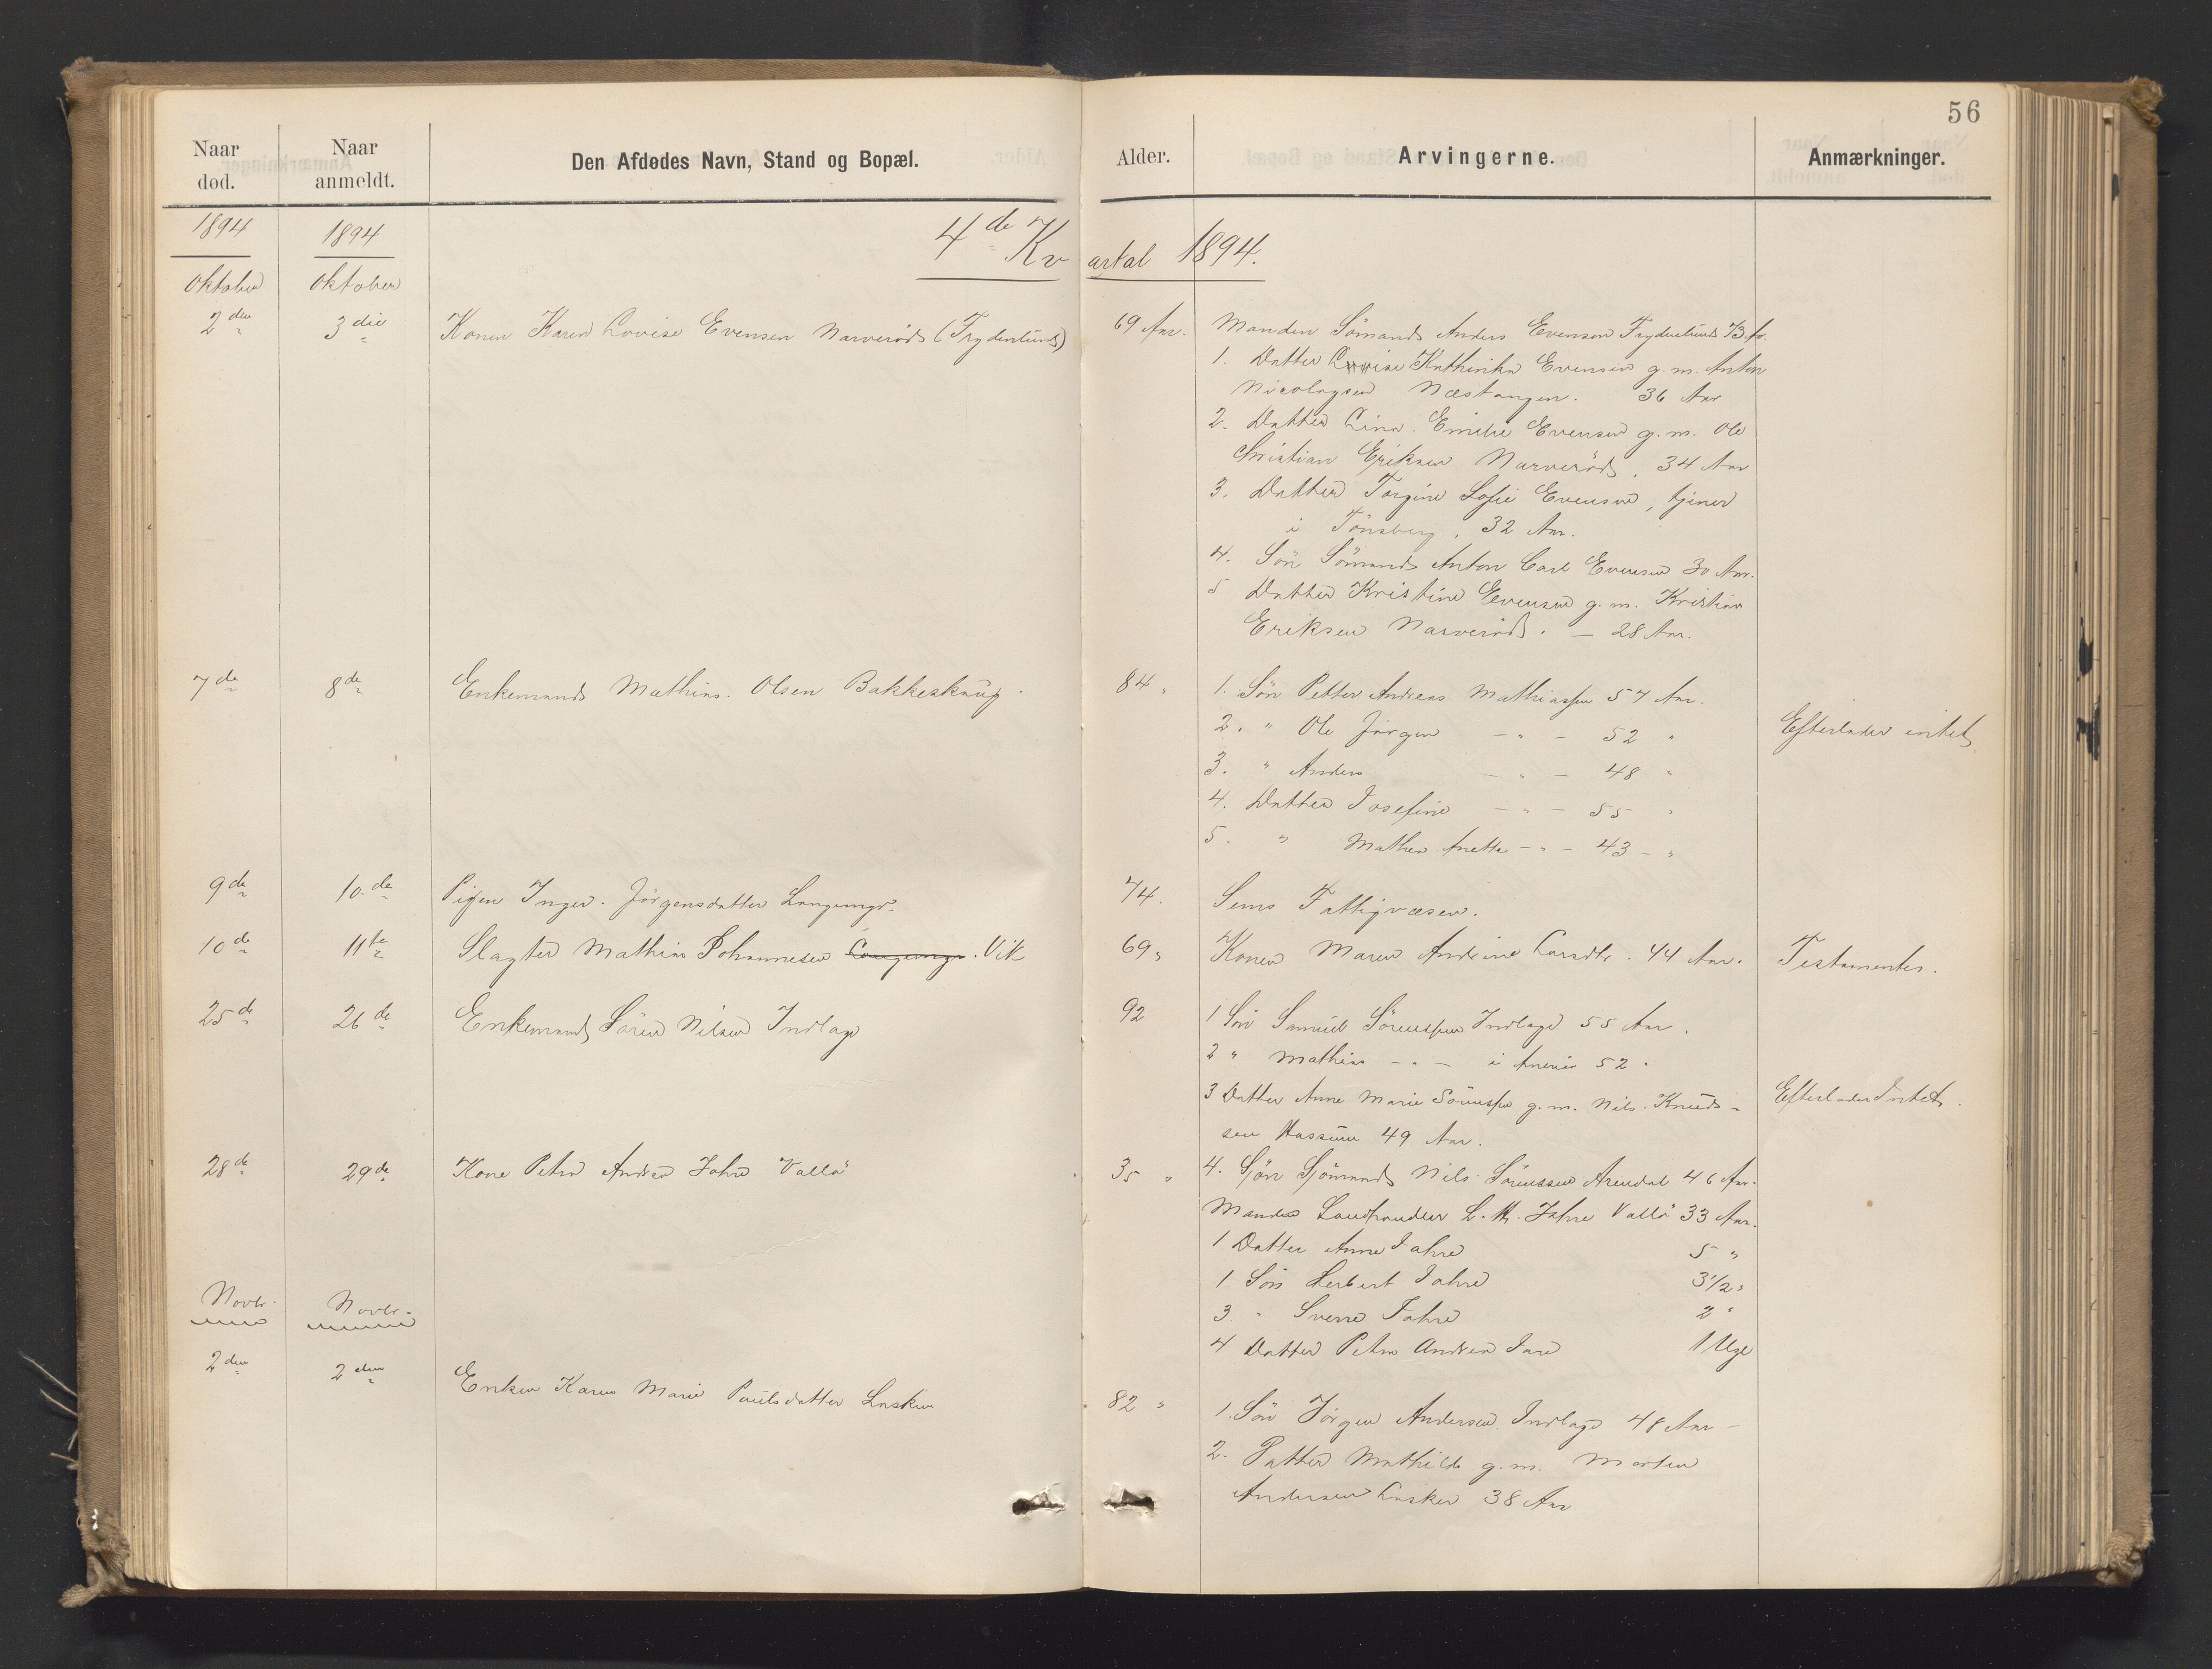 56
Naar død.
Naar anmeldt.
Den Afdødes Navn, Stand og Bopæl.
Alder.
Arvingerne.
Anmærkninger.
1894
1894
4de Kvartal 1894.
Oktober
Oktober
2den
3die
Konen Karen Lovise Evensen Narverød (Frydenlund)
69 Aar.
Manden Sömand Anders Evensen Frydenlund 73 Aar.
1. Datter Lovise Kathinka Evensen g. m. Anton
Nicolaysen Næstangen. 36 Aar
2. Datter Lina Emilie Evensen g. m. Ole
Christian Eriksen Narveröd, 34 Aar
3. Datter Torgine Sofie Evensen, tjener
i Tönsberg, 32 Aar.
4. Sön Sömand Anton Carl Evensen 30 Aar.
5 Datter Kristine Evensen g. m. Kristian
Eriksen Narveröd. – 28 Aar.
7de
8de
Enkemand Mathias Olsen Bakkeskaug
84 "
1. Sön Petter Andreas Mathiassen 57 Aar.
2. " Ole Jörgen – " – 52 "
Efterlader intet.
3. " Anders – " – 48 "
4. Datter Josefine – " – 55 "
5. " Mathea Anette – " – 43 – "
9de
10de
Pigen Inger Jörgensdatter
74.
Sems Fattigvæsen.
10de
11te
Slagter Mathias Johannesen Vik
69 "
Konen Maren Andrine Larsdtr. 44 Aar.
Testamenter.
25de
26de
Enkemand Sören Nilsen Indlag
92
1 Sön Samuel Sörensen Indlag 55 Aar.
2 " Mathias – " – i 52 "
3 Datter Anne Marie Sörensen g. m. Nils Knud-
sen Hassum 49 Aar.
Efterlader Intet.
28de
29de
Kone Petra Andrea Jahre Vallö
35 "
4. Sjön Sjömand Nils Sörensen Arendal 46 Aar.
Manden Landhandler L. M. Jahre Vallö 33 Aar.
1 Datter Anne Jahre 5 "
1. Sön Herbert Jahre 3 1/2 "
3 " Sverre Jahre 2 "
4 Datter Petra Andrea Jare 1 Uge
Novbr.
Novbr.
2den
2den
Enken Karen Marie Paulsdatter Lasken
82 "
1. Sön Jörgen Andersen Indlag 48 Aar –
2. Datter Mathilde g. m. Morten
Andersen Lasken 38 Aar